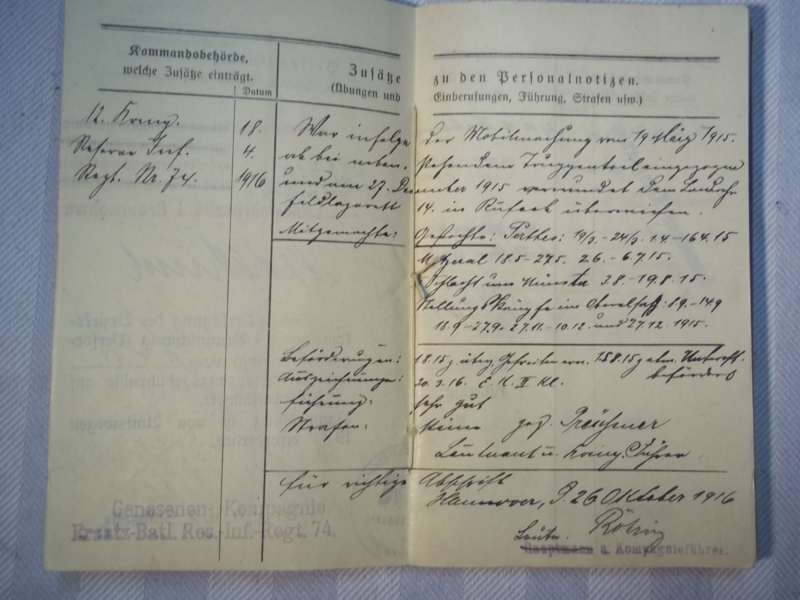 Kommandobehörde,
welche Zusätze einträgt.
Datum
Zusätze
(Übungen und
zu den Personalnotizen.
Einberufungen, Führung, Strafen usw.)
12. Komp. 18.
Reserve Inf. 4.
Regt. Nr. 74. 1916
War infolge der Mobilmachung vom 19 März 1915.
ab bei neben- stehendem Truppenteil eingezogen
und am 27. Dezember 1915 verwundet dem
Feldlazarett 14. in Rufach überwiesen.
Mitgemachte: Gefechte: Perthes: 19/3.-24/3. 1.4.-16.4.15
Metzeral 18.5-27.5. 26.-6.7.15.
Schlacht um Münster 3.8.-19.8.15.
Stellungskämpfe im Oberelsaß: 8.9.-14.9
18.9-27.9. 27.11.-10.12. und 27.12.1915.
Beförderungen: befördert
Auszeichnungen: 20.3.16. E. K. II Kl.
Führung: sehr gut
Strafen: keine gez.
Leutnant u. Komp. Führer
für richtige Abschrift
Hannover, d. 26 Oktober 1916
Leutn.
Hauptmann u. Kompagnieführer.
Genesenen-Kompagnie
Ersatz-Batl. Res.-Inf.-Regt. 74.